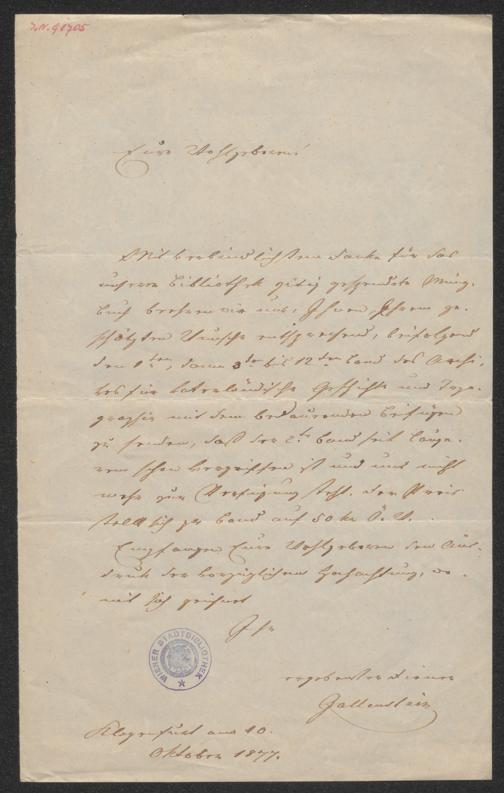 I.N. 91705
Eure Wohlgeboren!
Mit verbindlichstem Danke für das
unserer Bibliothek gütig gespendete
buch beehren wir uns, Ihrem ge-
schätzten Wunsche entsprechend, beifolgend
den 1ten, dann 3ten bis 12ten Band des Archi-
ves für vaterländische Geschichte und Topo-
graphie mit dem bedauernden Beifügen
zu senden, daß der 2te Band seit länge-
rem schon vergriffen ist und uns nicht
mehr zur Verfügung steht. Der Preis
stellt sich per Band auf 50 kr Ö. W.
Empfangen Eure Wohlgeboren den Aus-
druck der vorzüglichen Hochachtung, wo-
mit sich zeichnet
Ihr
WIENER STADTBIBLIOTHEK
ergebenster Diener
Gallenstein
Klagenfurt am 10.
Oktober 1877.